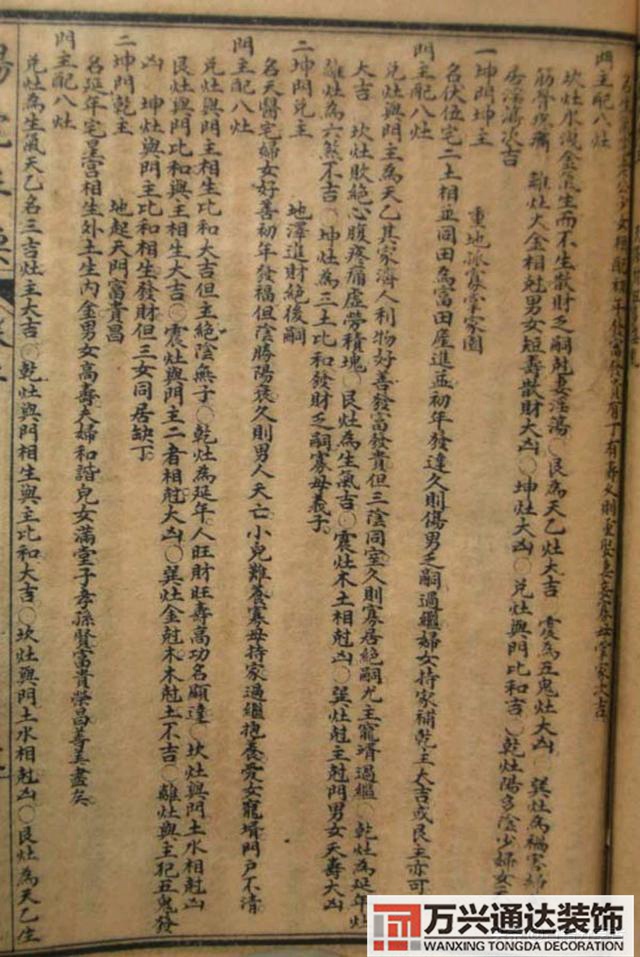 門主配八灶
坎灶水洩金氣生而不生散財乏嗣尅妻淫蕩○艮為天乙灶大吉 震為五鬼灶大凶○巽灶為禍害婦
筋骨疼痛 離灶火金相尅男女短壽散財大凶○坤灶大凶○兌灶與門比和吉○乾灶陽多陰少婦女
居淫蕩次吉
一坤門坤主 重地孤寡掌家園
名伏位宅二土相並同田為富田産進益初年發達久則傷男乏嗣過繼婦女持家補乾主大吉或艮主亦可
門主配八灶
兌灶與門主為天乙其家濟人利物好善發富發貴但三陰同室久則寡居絶嗣尤主寵壻過繼 乾灶為延年灶
大吉 坎灶敗絶心腹疼痛虛勞積塊○艮灶為生氣吉○震灶木土相尅凶○巽灶尅主尅門男女夭壽大凶
離灶為六煞不吉○坤灶為三土比和發財乏嗣寡母義子
二坤門兌主 地澤進財絶後嗣
名天醫宅婦女好善初年發福但陰勝陽衰久則男人夭亡小兒難養寡母持家過繼抱養愛女寵壻門戶不清
門主配八灶
兌灶與門主相生比和大吉但主絶陰無子○乾灶為延年人旺財旺壽高功名顯達○坎灶與門土水相尅凶
艮灶與門比和與主相生大吉○震灶與門主二者相尅大凶○巽灶金尅木木尅土不吉○離灶與主犯五鬼發
凶 坤灶與門主比和相生發財但三女同居缺丁
二坤門乾主 地起天門富貴昌
名延年宅呈宮相生外土生內金男女高壽夫婦和諧兒女滿堂子孝孫賢富貴榮昌善美盡矣
門主配八灶
兌灶為生氣天乙名三吉灶主大吉○乾灶與門相生與主比和大吉○坎灶與門土水相尅凶○艮灶為天乙生
万兴通达装饰
WANXING TONGDA DECORATION